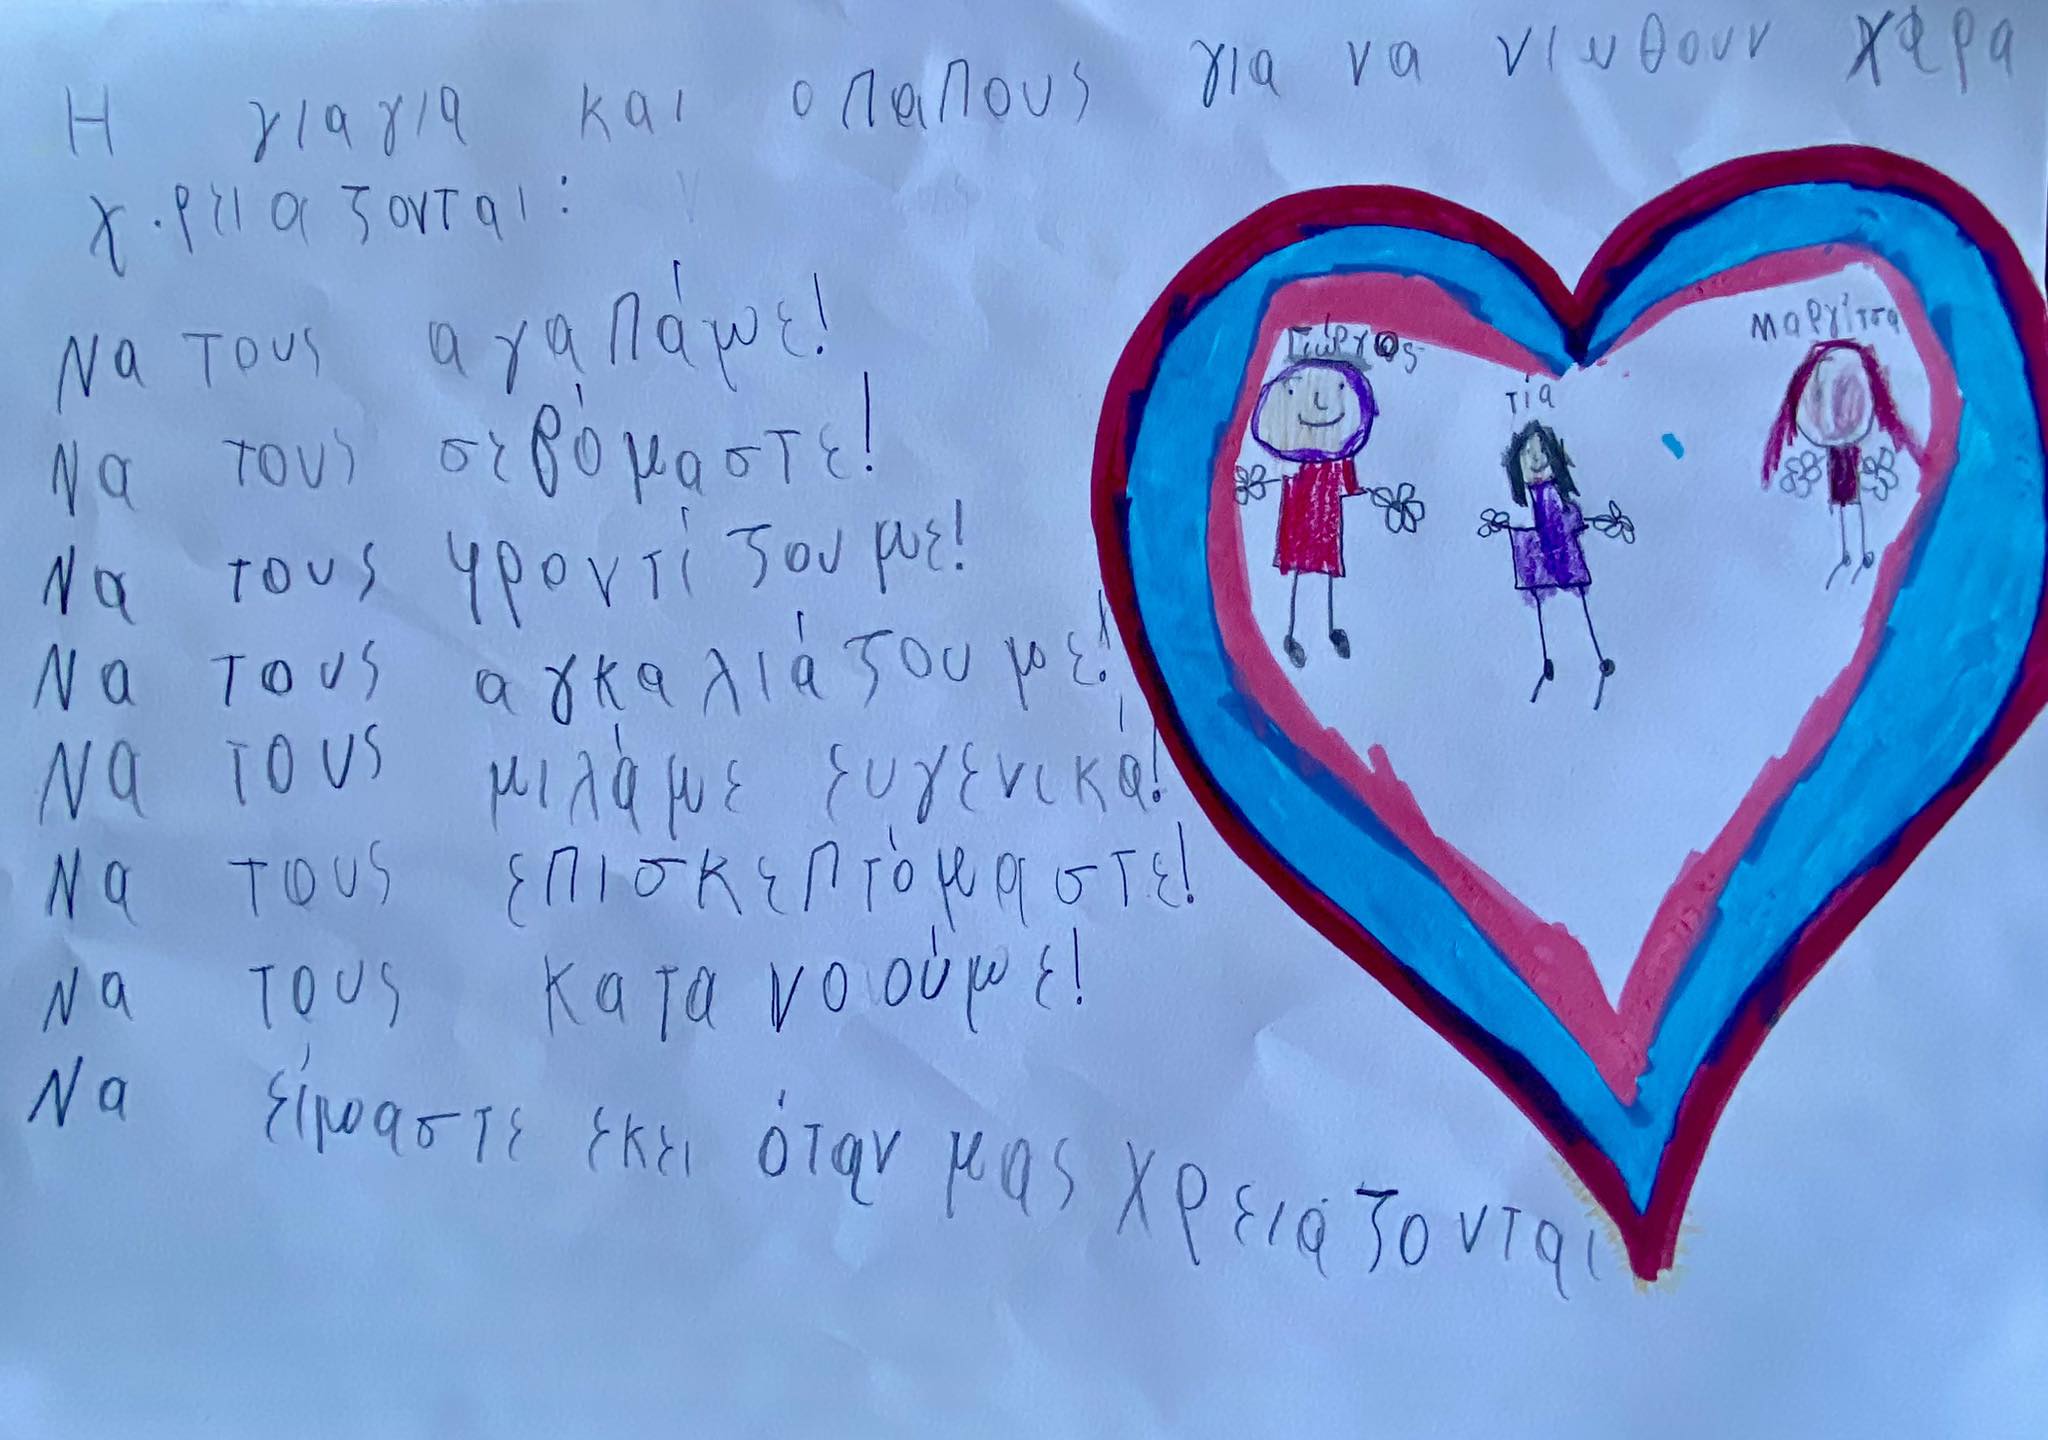 Η γιαγια και ο παπους για να νιωθουν χαρα
χρειαζονται:
Να τους αγαπάμε!
Να τους σεβόμαστε!
Να τους φροντίζουμε!
Να τους αγκαλιάζουμε!
Να τους μιλάμε ευγενικά!
Να τους επισκεπτόμαστε!
Να τους κατανοούμε!
Να είμαστε εκει όταν μας χρειάζονται
Γιώργος
τία
Μαργίτσα